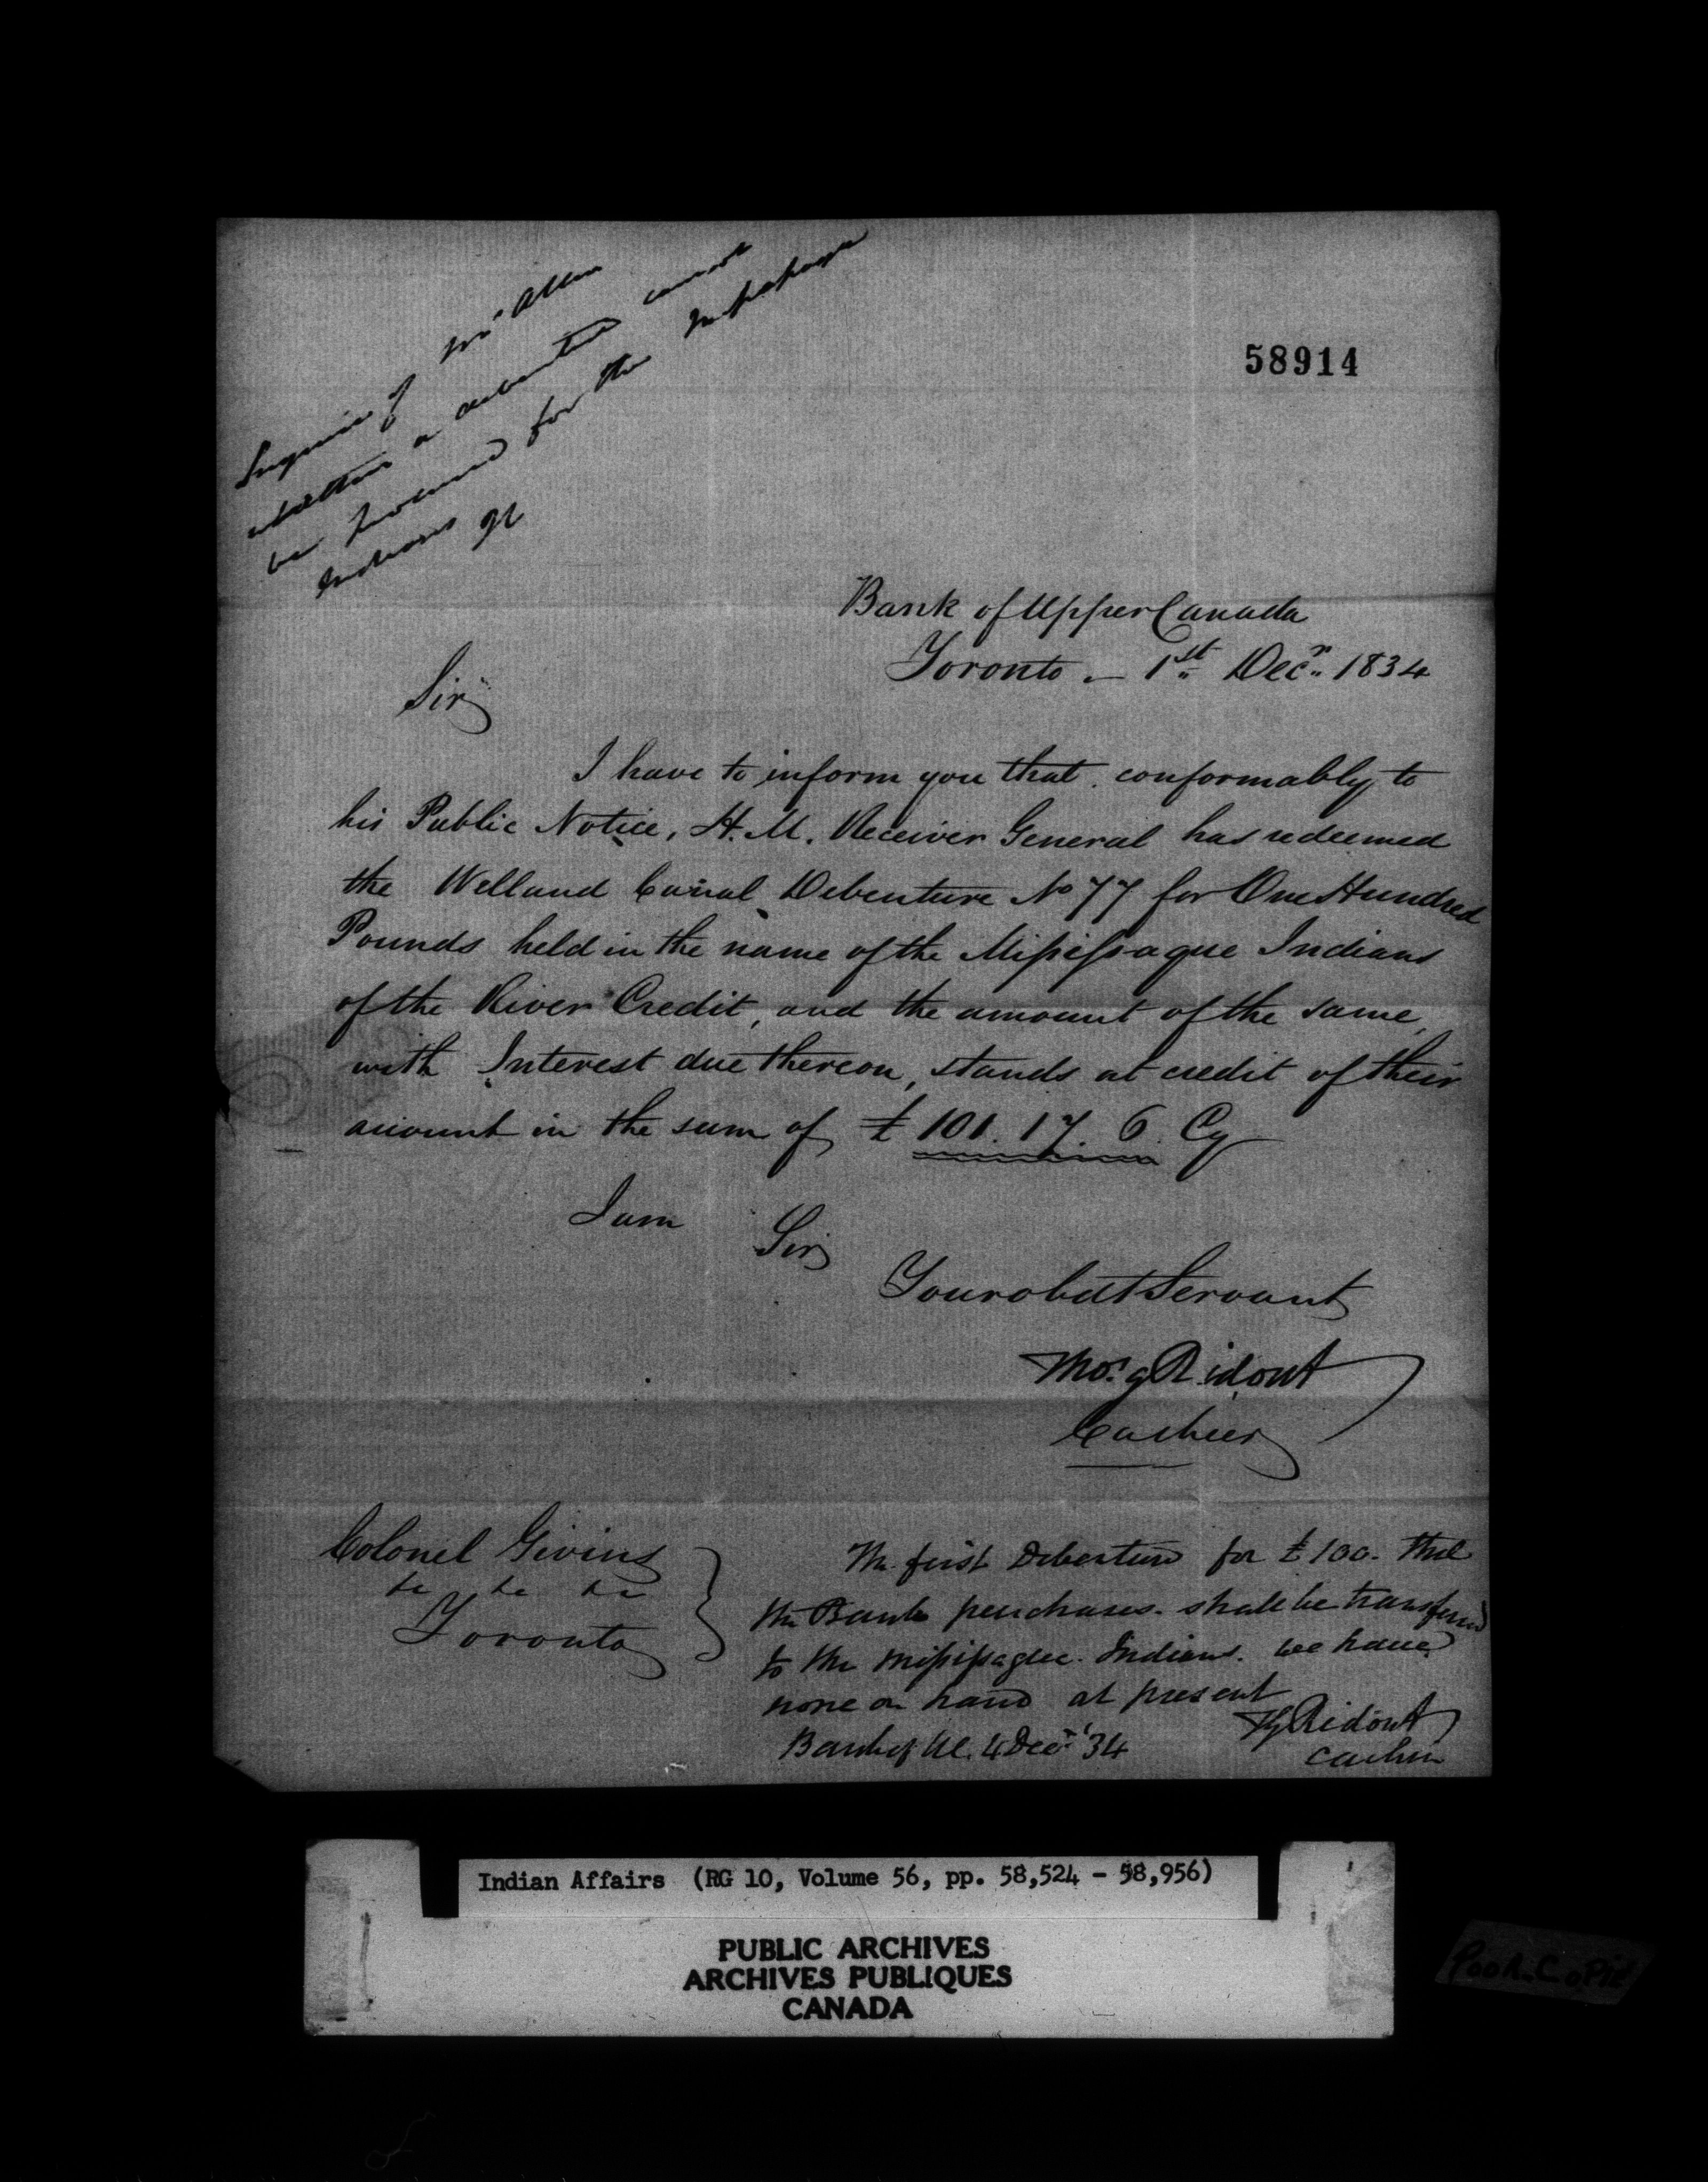 Inquire of Mr Allan
whether a debenture cannot
be procured for the Missisaga
Indians
58914
Bank of Upper Canada
Toronto - 1st Decr 1834
Sir
I have to inform you that conformably to
his Public Notice, H. M. Receiver General has redeemed
the Welland Canal Debenture No 77 for One Hundred
Pounds held in the name of the Missessague Indians
of the River Credit, and the amount of the same,
with Interest due thereon, stands at credit of their
account in the sum of £ 101. 17. 6 Cy
I am
Sir
Your obdt Servant
Thos. G Ridout
Cashier
Colonel Givins
&c &c &c
Toronto
The first Debenture for £100. that
the Bank purchases. shall be transferred
to the Missisague. Indians. we have
none on hand at present
Bank of U.C. 4 Decr '34
TG Ridout
Cashier
Indian Affairs (RG 10, Volume 56, pp. 58,524 - 58,956)
PUBLIC ARCHIVES
ARCHIVES PUBLIQUES
CANADA
Poor Copie